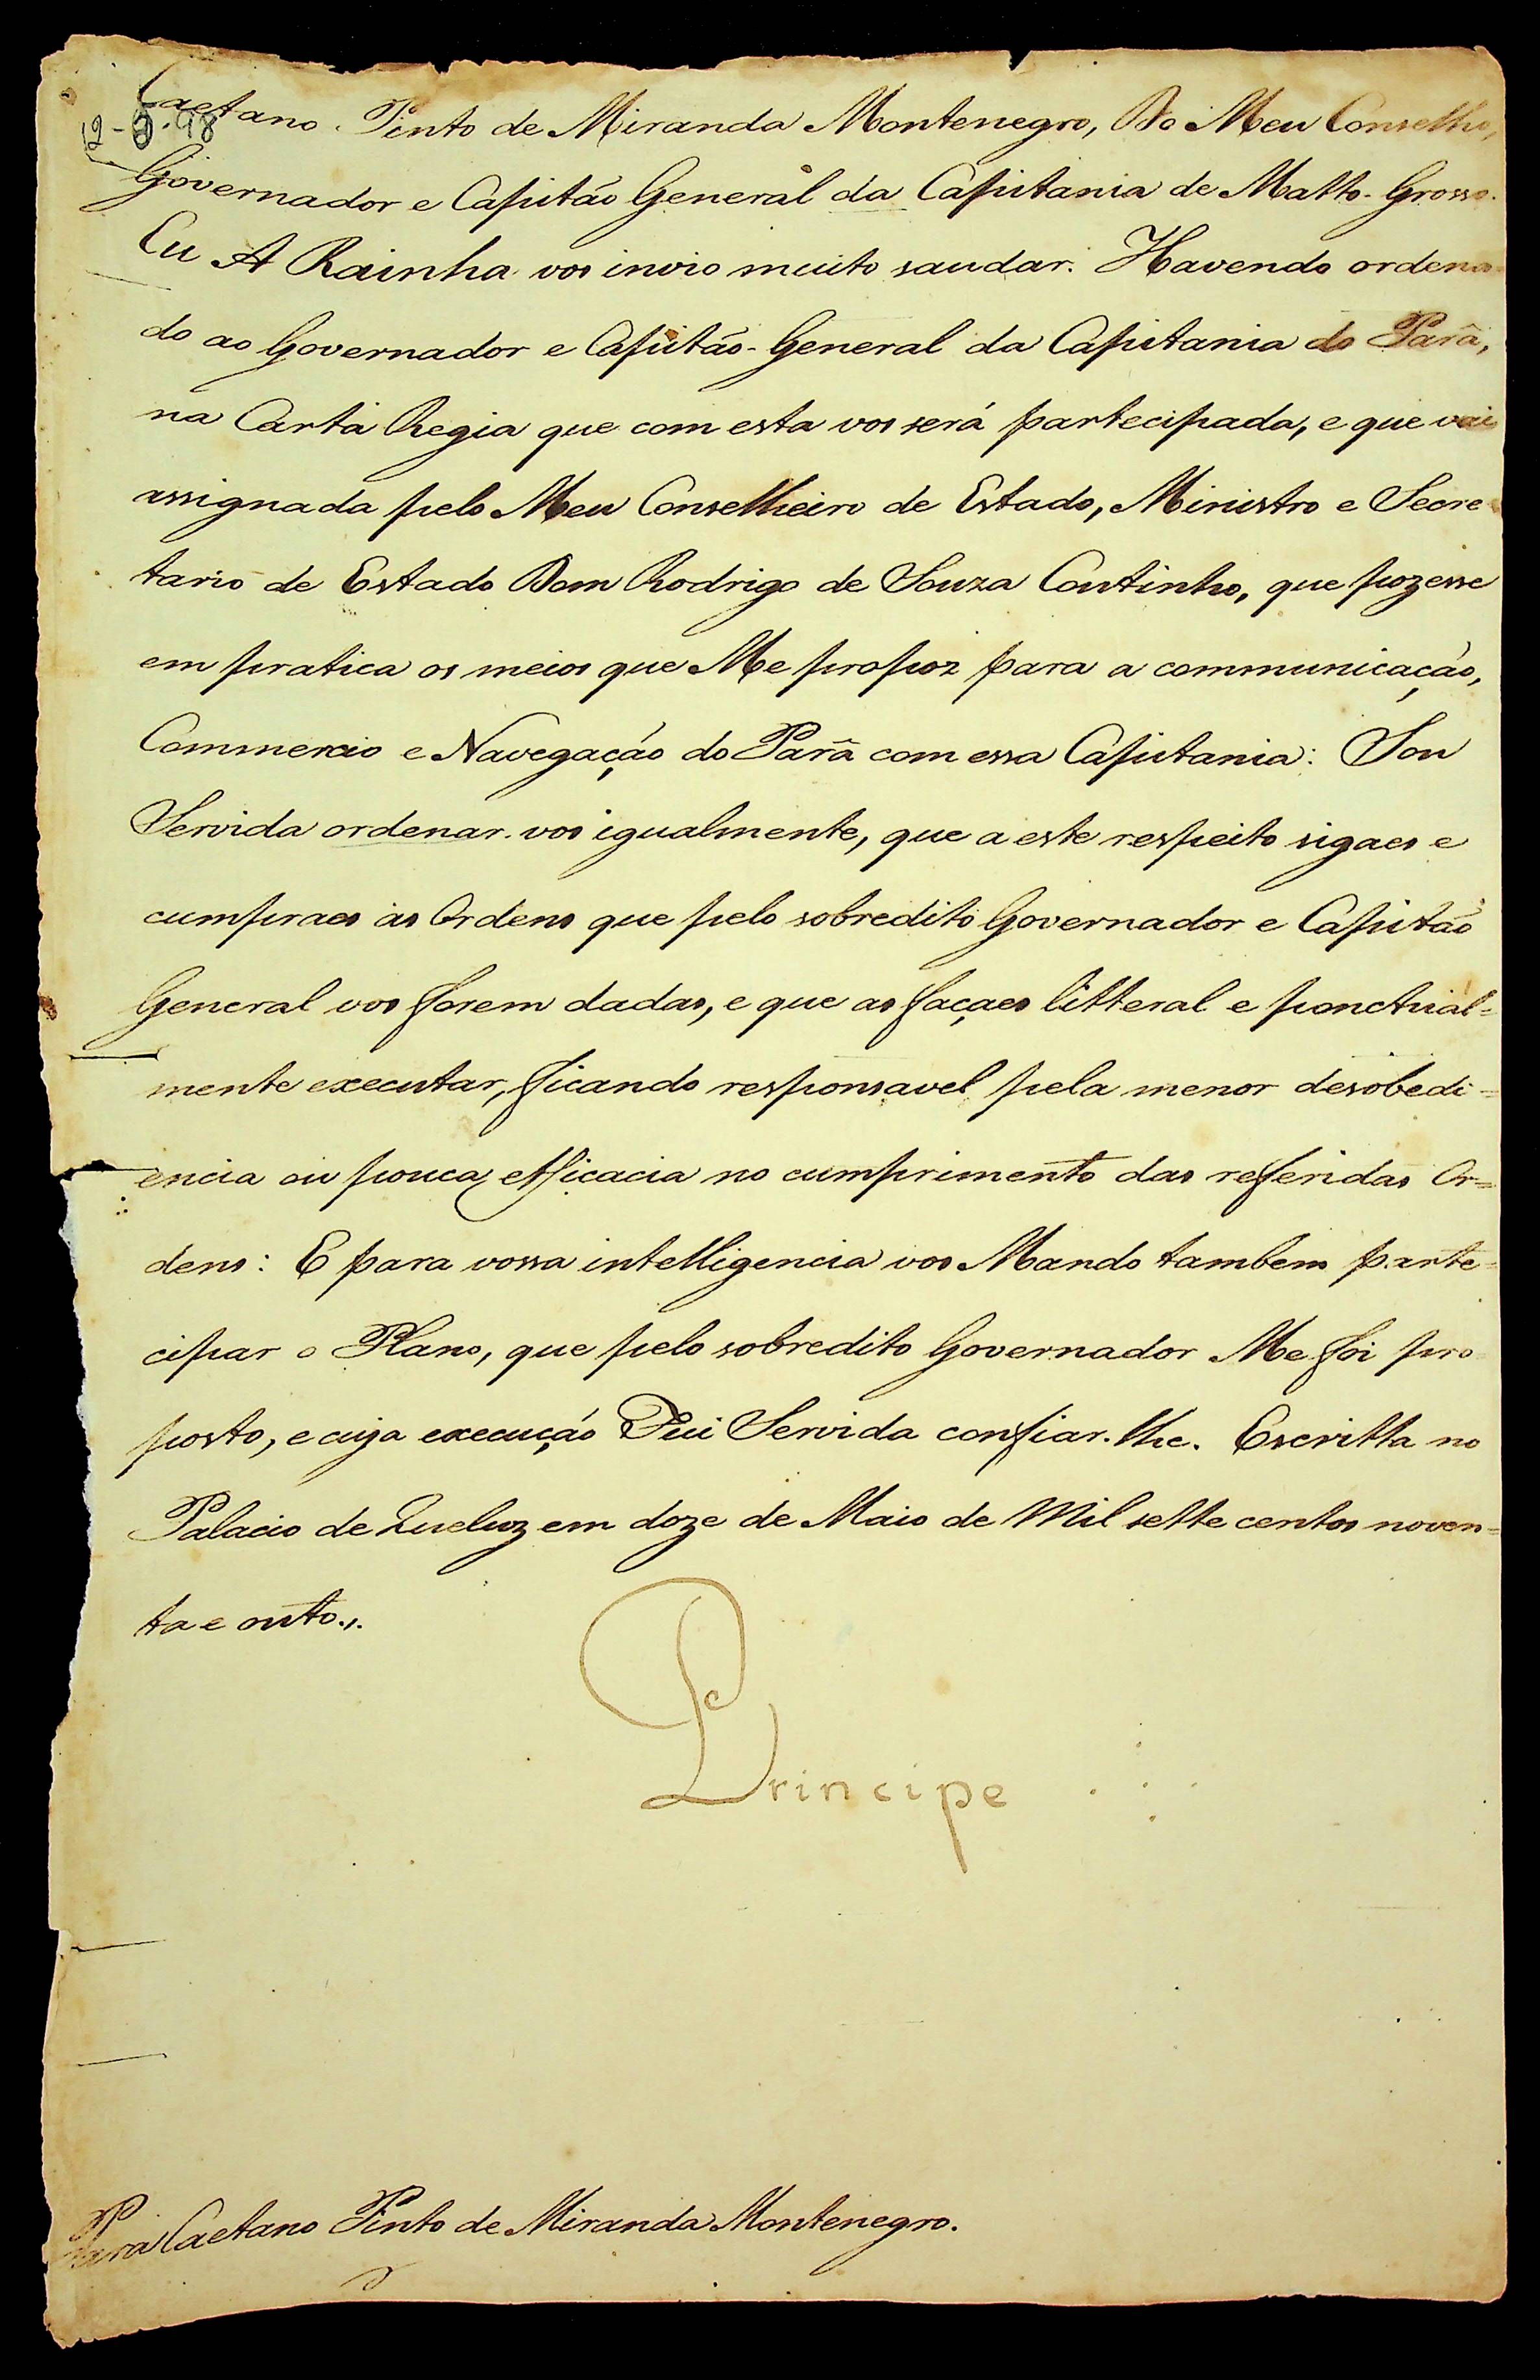 Caetano Pinto de Miranda Montenegro, Do Meu Conselho,
12-5-98
Governador e Capitão General da Capitania de Matto-Grosso.
Eu A Rainha vos invio muito saudar. Havendo ordena
do ao Governador e Capitão-General da Capitania do Parâ,
na Carta Regia que com esta vos será partecipada, e que vai
assignada pelo Meu Conselheiro de Estado, Ministro e Secre
tario de Estado Dom Rodrigo de Souza Coutinho, que pozesse
em pratica os meios que Me propoz para a communicação,
Commercio e Navegação do Parâ com essa Capitania: Sou
Servida ordenar-vos igualmente, que a este respeito sigaes e
cumpraes as Ordens que pelo sobredito Governador e Capitão
General vos forem dadas, e que as façaes litteral e ponctual=
mente executar, ficando responsavel pela menor desobedi=
encia ou pouca efficacia no cumprimento das referidas Or=
dens: E para vossa intelligencia vos Mando tambem parte=
cipar o Plano, que pelo sobredito Governador Me foi pro
posto, e cuja execução Fui Servida confiar-lhe. Escritta no
Palacio de Queluz em doze de Maio de Mil sette centos noven=
ta e outo.
Principe
Para Caetano Pinto de Miranda Montenegro.